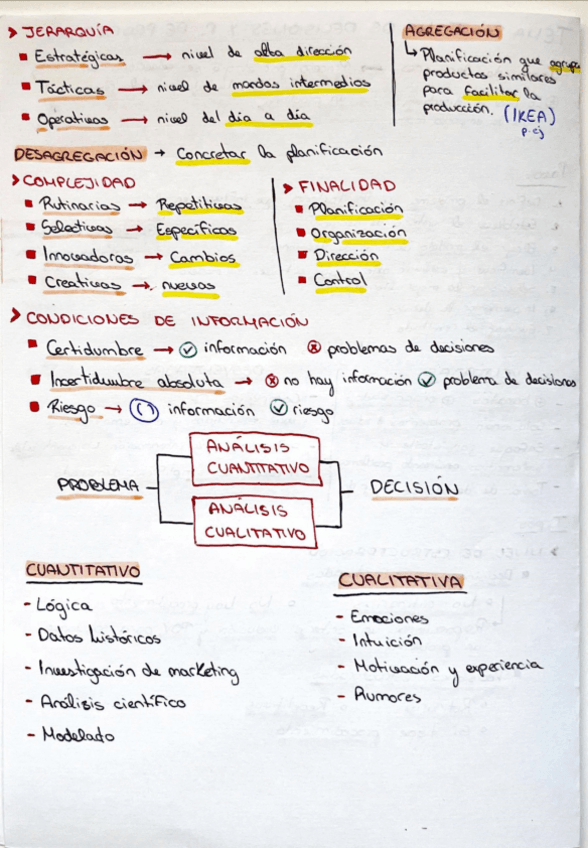 > JERARQUÍA
▪ Estratégicas → nivel de alta dirección
▪ Tácticas → nivel de mandos intermedios
▪ Operativas → nivel del día a día
AGREGACIÓN
↳ Planificación que agrupa
productos similares
para facilitar la
producción. (IKEA)
p. ej
DESAGREGACIÓN → Concretar la planificación
> COMPLEJIDAD
▪ Rutinarias → Repetitivas
▪ Selectivas → Específicas
▪ Innovadoras → Cambios
▪ Creativas → nuevas
> FINALIDAD
▪ Planificación
▪ Organización
▪ Dirección
▪ Control
> CONDICIONES DE INFORMACIÓN
▪ Certidumbre → ✓ información ✗ problemas de decisiones
▪ Incertidumbre absoluta → ✗ no hay información ✓ problema de decisiones
▪ Riesgo → ( ) información ✓ riesgo
ANÁLISIS
CUANTITATIVO
PROBLEMA
DECISIÓN
ANÁLISIS
CUALITATIVO
CUANTITATIVO
- Lógica
- Datos históricos
- Investigación de marketing
- Análisis científico
- Modelado
CUALITATIVA
- Emociones
- Intuición
- Motivación y experiencia
- Rumores